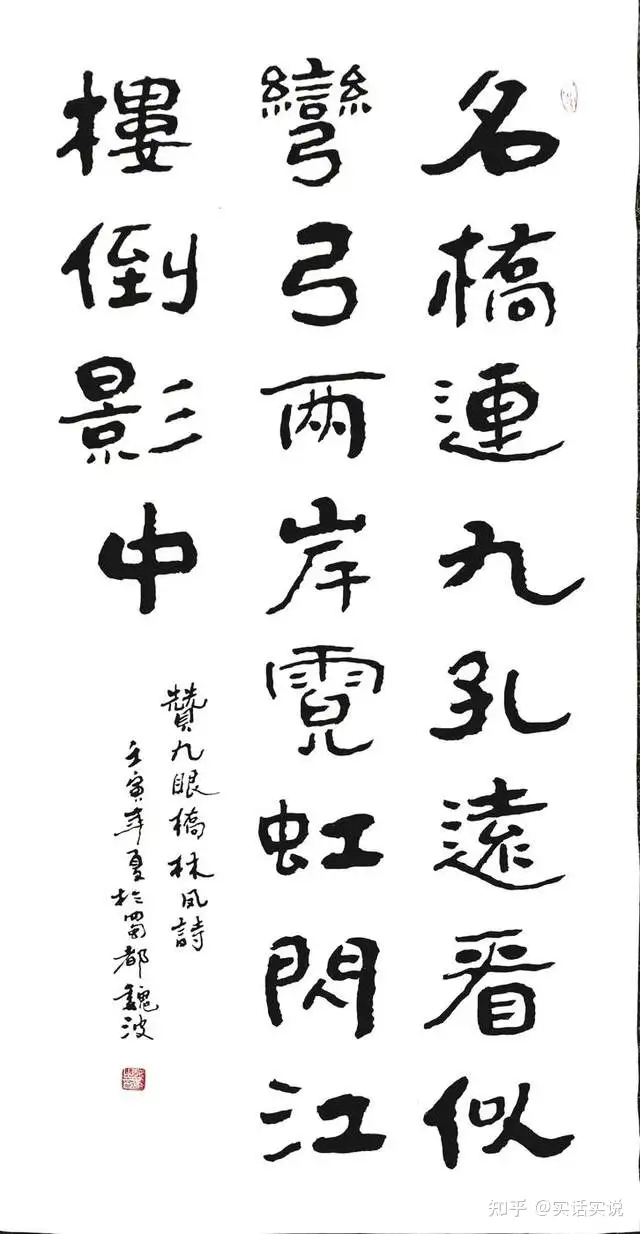 名橋連九孔遠看似
彎弓兩岸霓虹閃江
樓倒影中
贊九眼橋林凤詩
壬寅年夏於蜀都魏波
知乎 @实话实说